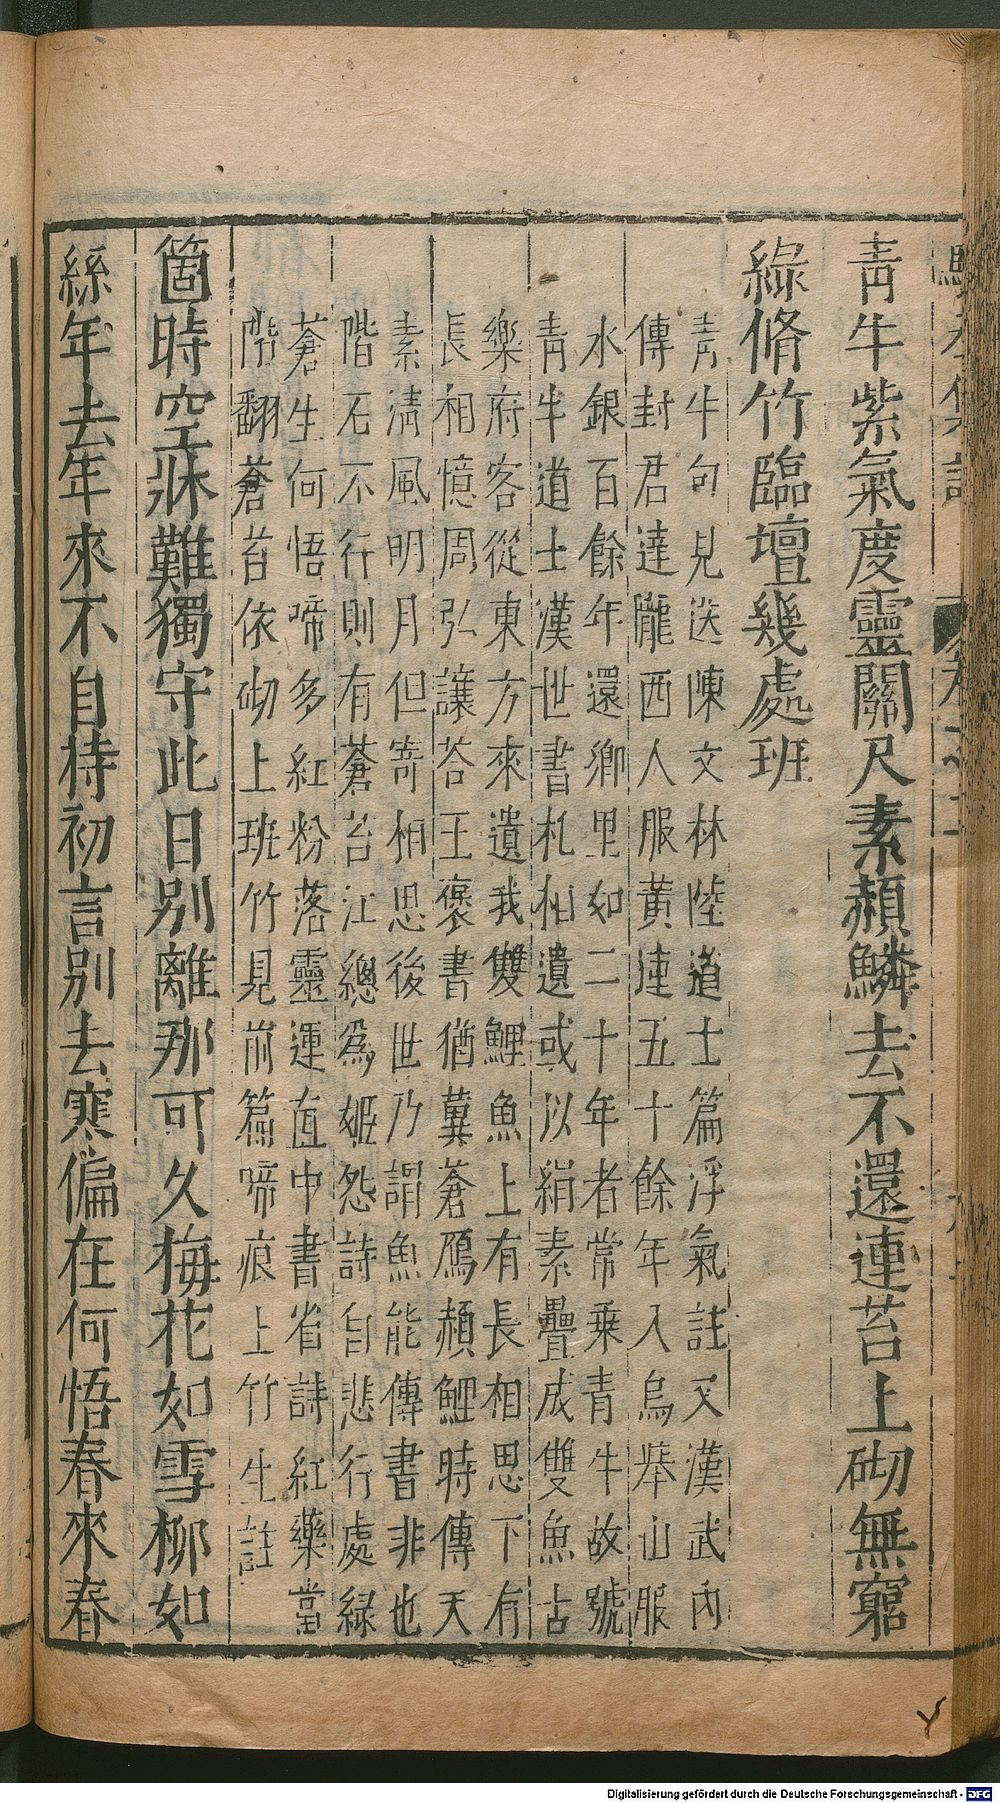 青牛紫氣度靈關尺素頳鱗去不還連苔上砌無窮
綠脩竹臨壇幾處班
青牛句見送陳文林陸道士篇浮氣註又漢武內
傳封君達隴西人服黃連五十餘年入烏舉山服
水銀百餘年還鄉里如二十年者常乗青牛故號
青牛道士漢世書札相遺或以絹素疊成雙魚古
樂府客從東方來遺我雙鯉魚上有長相思下有
長相憶周弘讓荅王褒書猶冀蒼鴈頳鯉時傳天
素清風明月但寄相思後世乃謂魚能傳書非也
階石不行則有蒼苔江總為姬怨詩自悲行處綠
蒼生何悟啼多紅粉落靈運直中書省詩紅藥當
階翻蒼苔依砌上班竹見前篇啼痕上竹生註
箇時空牀難獨守此日別離那可久梅花如雪柳如
絲年去年來不自持初言別去寒偏在何悟春來春
Digitalisierung gefördert durch die Deutsche Forschungsgemeinschaft - DFG